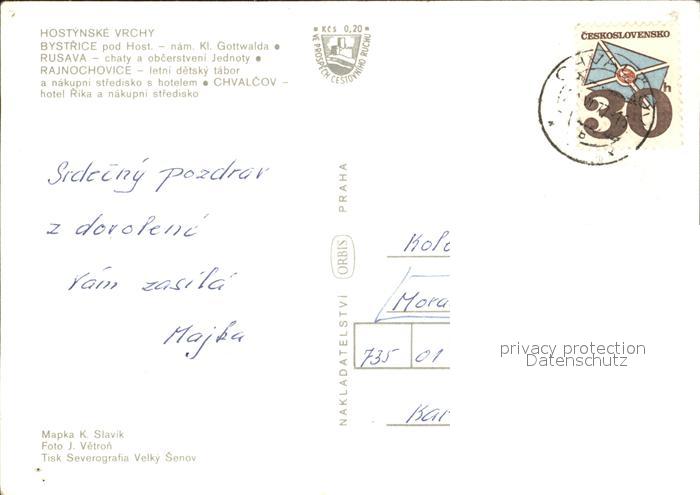 HOSTÝNSKÉ VRCHY
BYSTŘICE pod Host. – nám. Kl. Gottwalda ●
RUSAVA – chaty a občerstvení Jednoty ●
RAJNOCHOVICE – letní dětský tábor
a nákupní středisko s hotelem ● CHVALČOV –
hotel Říka a nákupní středisko
Kčs 0,20
VE PROSPĚCH CESTOVNÍHO RUCHU
ČESKOSLOVENSKO
30h
Srdečný pozdrav
z dovolené
Vám zasílá
Majka
NAKLADATELSTVÍ ORBIS PRAHA
Kolo
Mora
735 01
Kar
privacy protection
Datenschutz
Mapka K. Slavík
Foto J. Větroň
Tisk Severografia Velký Šenov